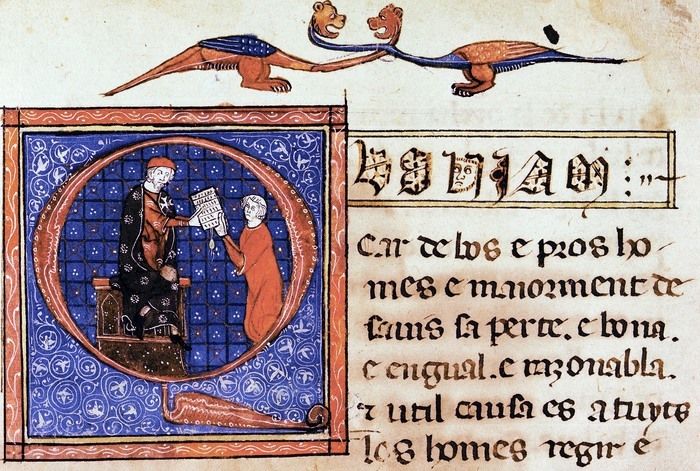 QUONIAM :
Car de bos e pros ho-
mes e maiorment de
sauis sa perte. e bona.
e engual. e razonabla.
⁊ util causa es a tuyts
los homes regir e